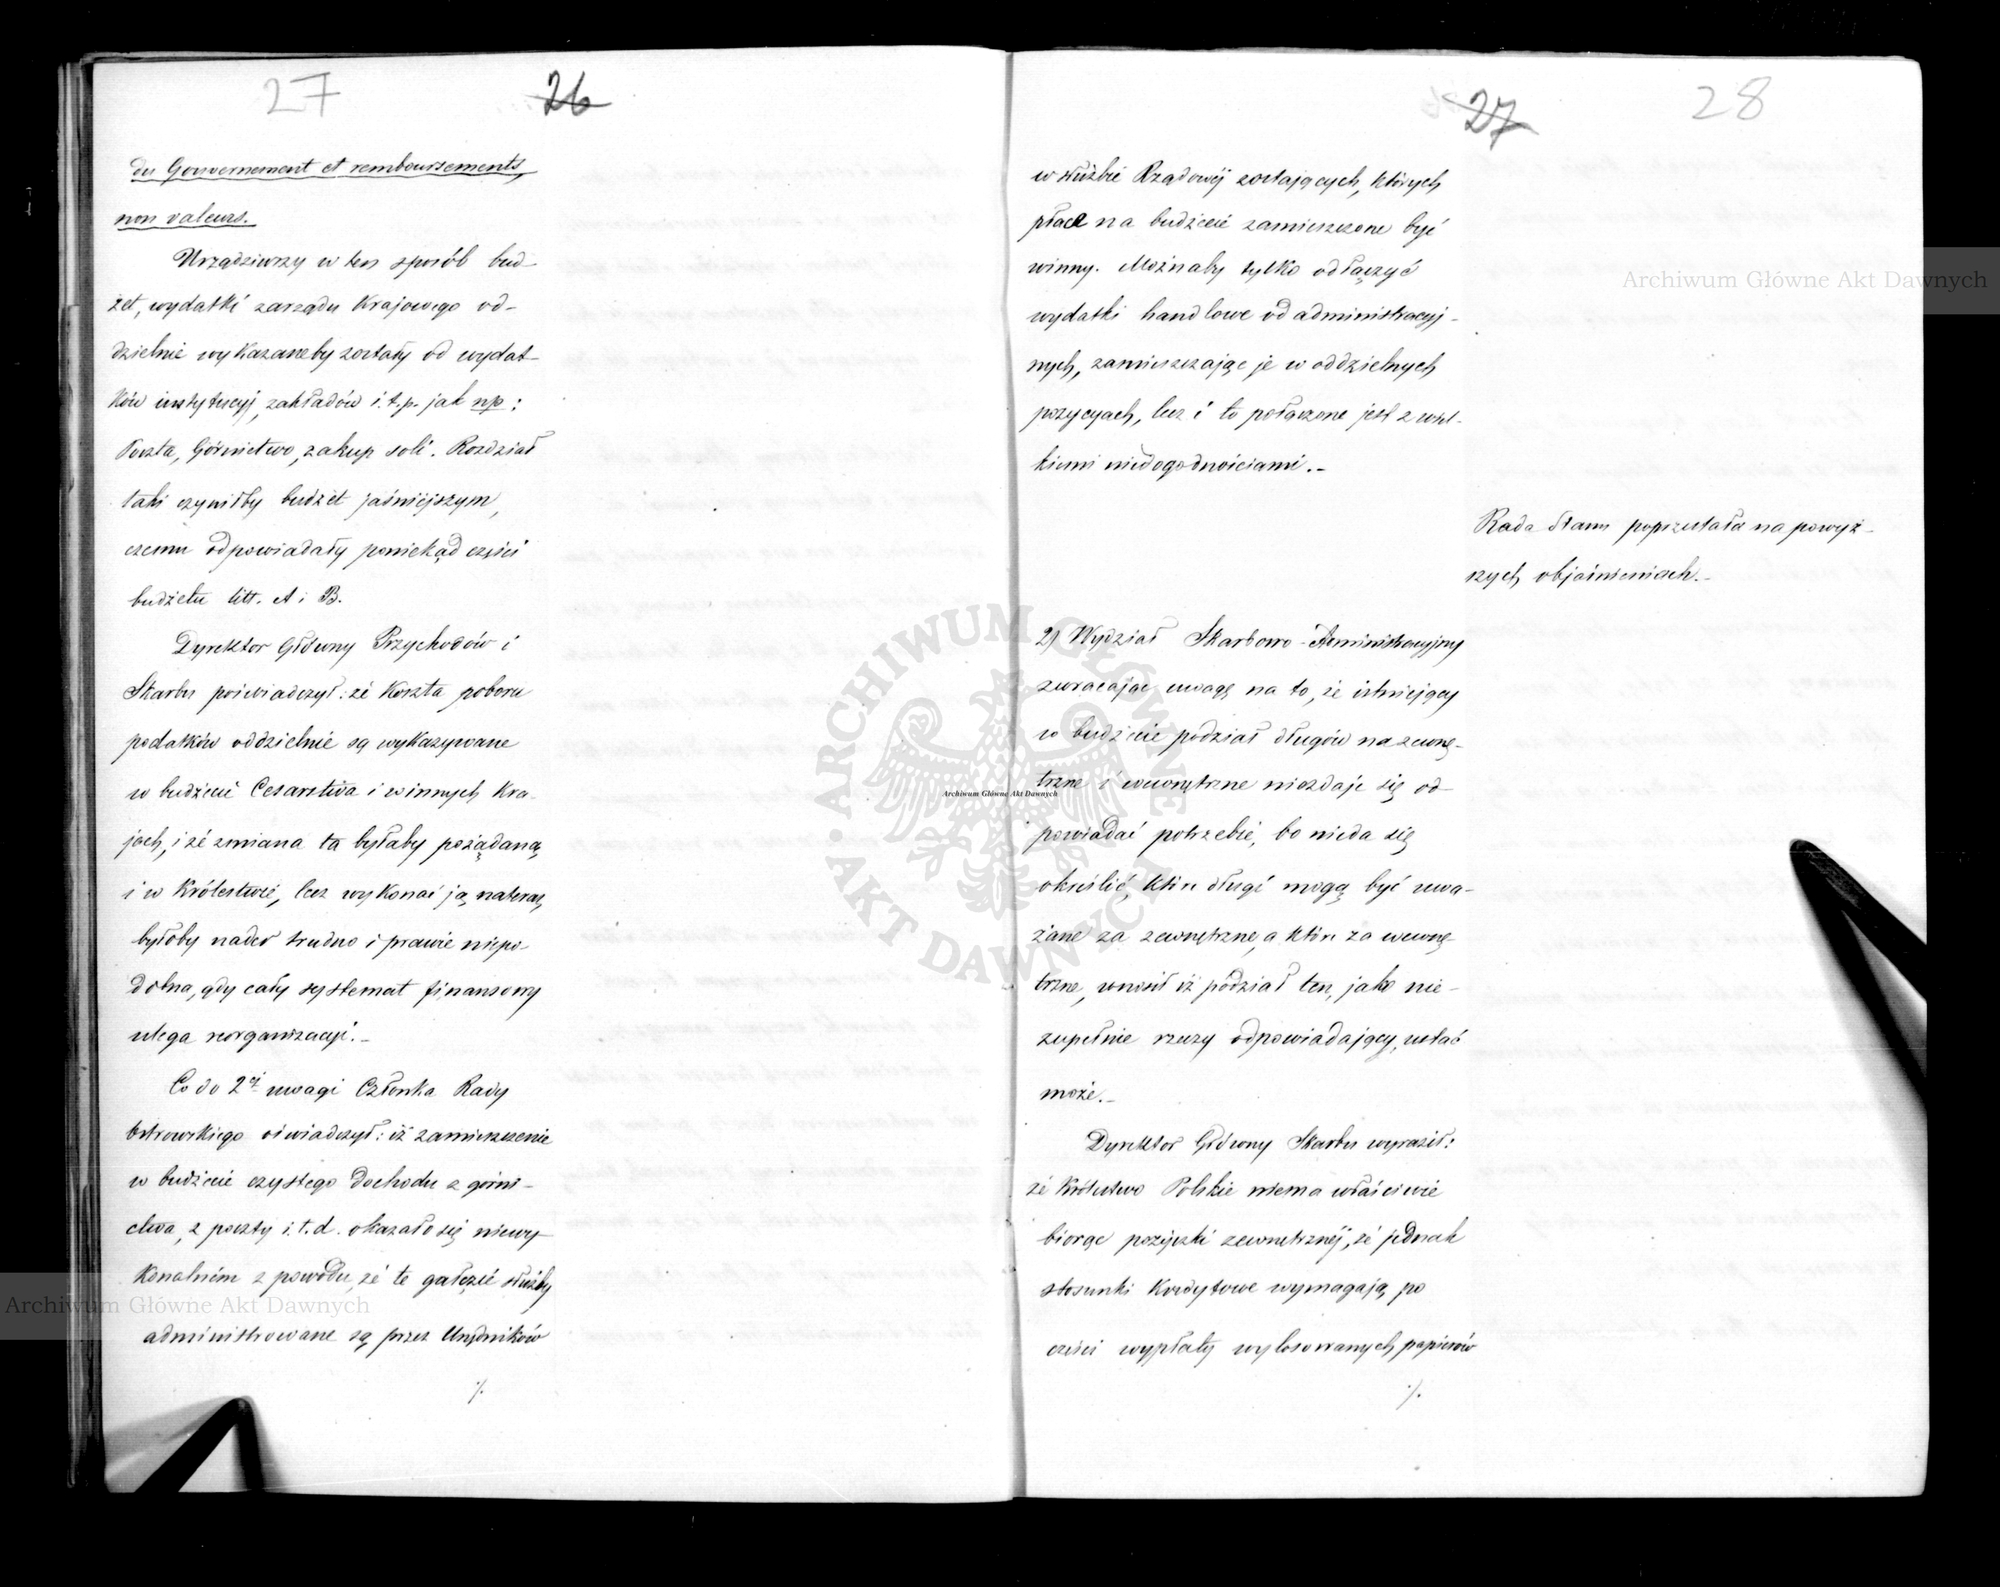 27
26
du Gouvernement et remboursements,
non valeurs.
Urządziwszy w ten sposób bud-
żet, wydatki zarządu Krajowego od-
dzielnie wykazaneby zostały od wydat-
ków instytucyj, zakładów i.t.p. jak np:
Poczta, Górnictwo, zakup soli. Rozdział
taki czyniłby budżet jaśniejszym,
czemu odpowiadały poniekąd części
budżetu litt. A i B.
Dyrektor Główny Przychodów i
Skarbu poświadczył: że Koszta poboru
podatków oddzielnie są wykazywane
w budżecie Cesarstwa i w innych Kra-
jach, i że zmiana ta byłaby pożądaną
i w Królestwie, lecz wykonać ją na teraz,
byłoby nader trudno i prawie niepo-
dobna, gdy cały systemat finansowy
ulega reorganizacyi.-
Co do 2ej uwagi Członka Rady
Ostrowskiego oświadczył: iż zamieszczenie
w budżecie czystego dochodu z górni-
ctwa, z poczty i.t.d. okazało się niewy-
konalném z powodu, że te gałęzie służby
administrowane są przez Urzędników
./.
27
28
w służbie Rządowéj zostających, których
płace na budżecie zamieszczone być
winny. Możnaby tylko odłączyć
wydatki handlowe od administracyj-
nych, zamieszczając je w oddzielnych
pozycyach, lecz i to połączone jest z wiel-
kiemi niedogodnościami.-
Rada Stanu poprzestała na powyż-
szych objaśnieniach.-
2) Wydział Skarbowo-Administracyjny
zwracając uwagę na to, że istniejący
w budżecie podział długów na zewnę-
trzne i wewnętrzne niezdaje się od-
powiadać potrzebie, bo nieda się
określić, które długi mogą być uwa-
żane za zewnętrzne, a które za wewnę-
trzne, wnosił iż podział ten, jako nie-
zupełnie rzeczy odpowiadający, ustać
może.-
Dyrektor Główny Skarbu wyraził:
że Królestwo Polskie niema właściwie
biorąc pożyczki zewnętrznéj, że jednak
stosunki Kredytowe wymagają, po
części wypłaty wylosowanych papierów
./.
Archiwum Główne Akt Dawnych
Archiwum Główne Akt Dawnych
Archiwum Główne Akt Dawnych
ARCHIWUM GŁÓWNE AKT DAWNYCH